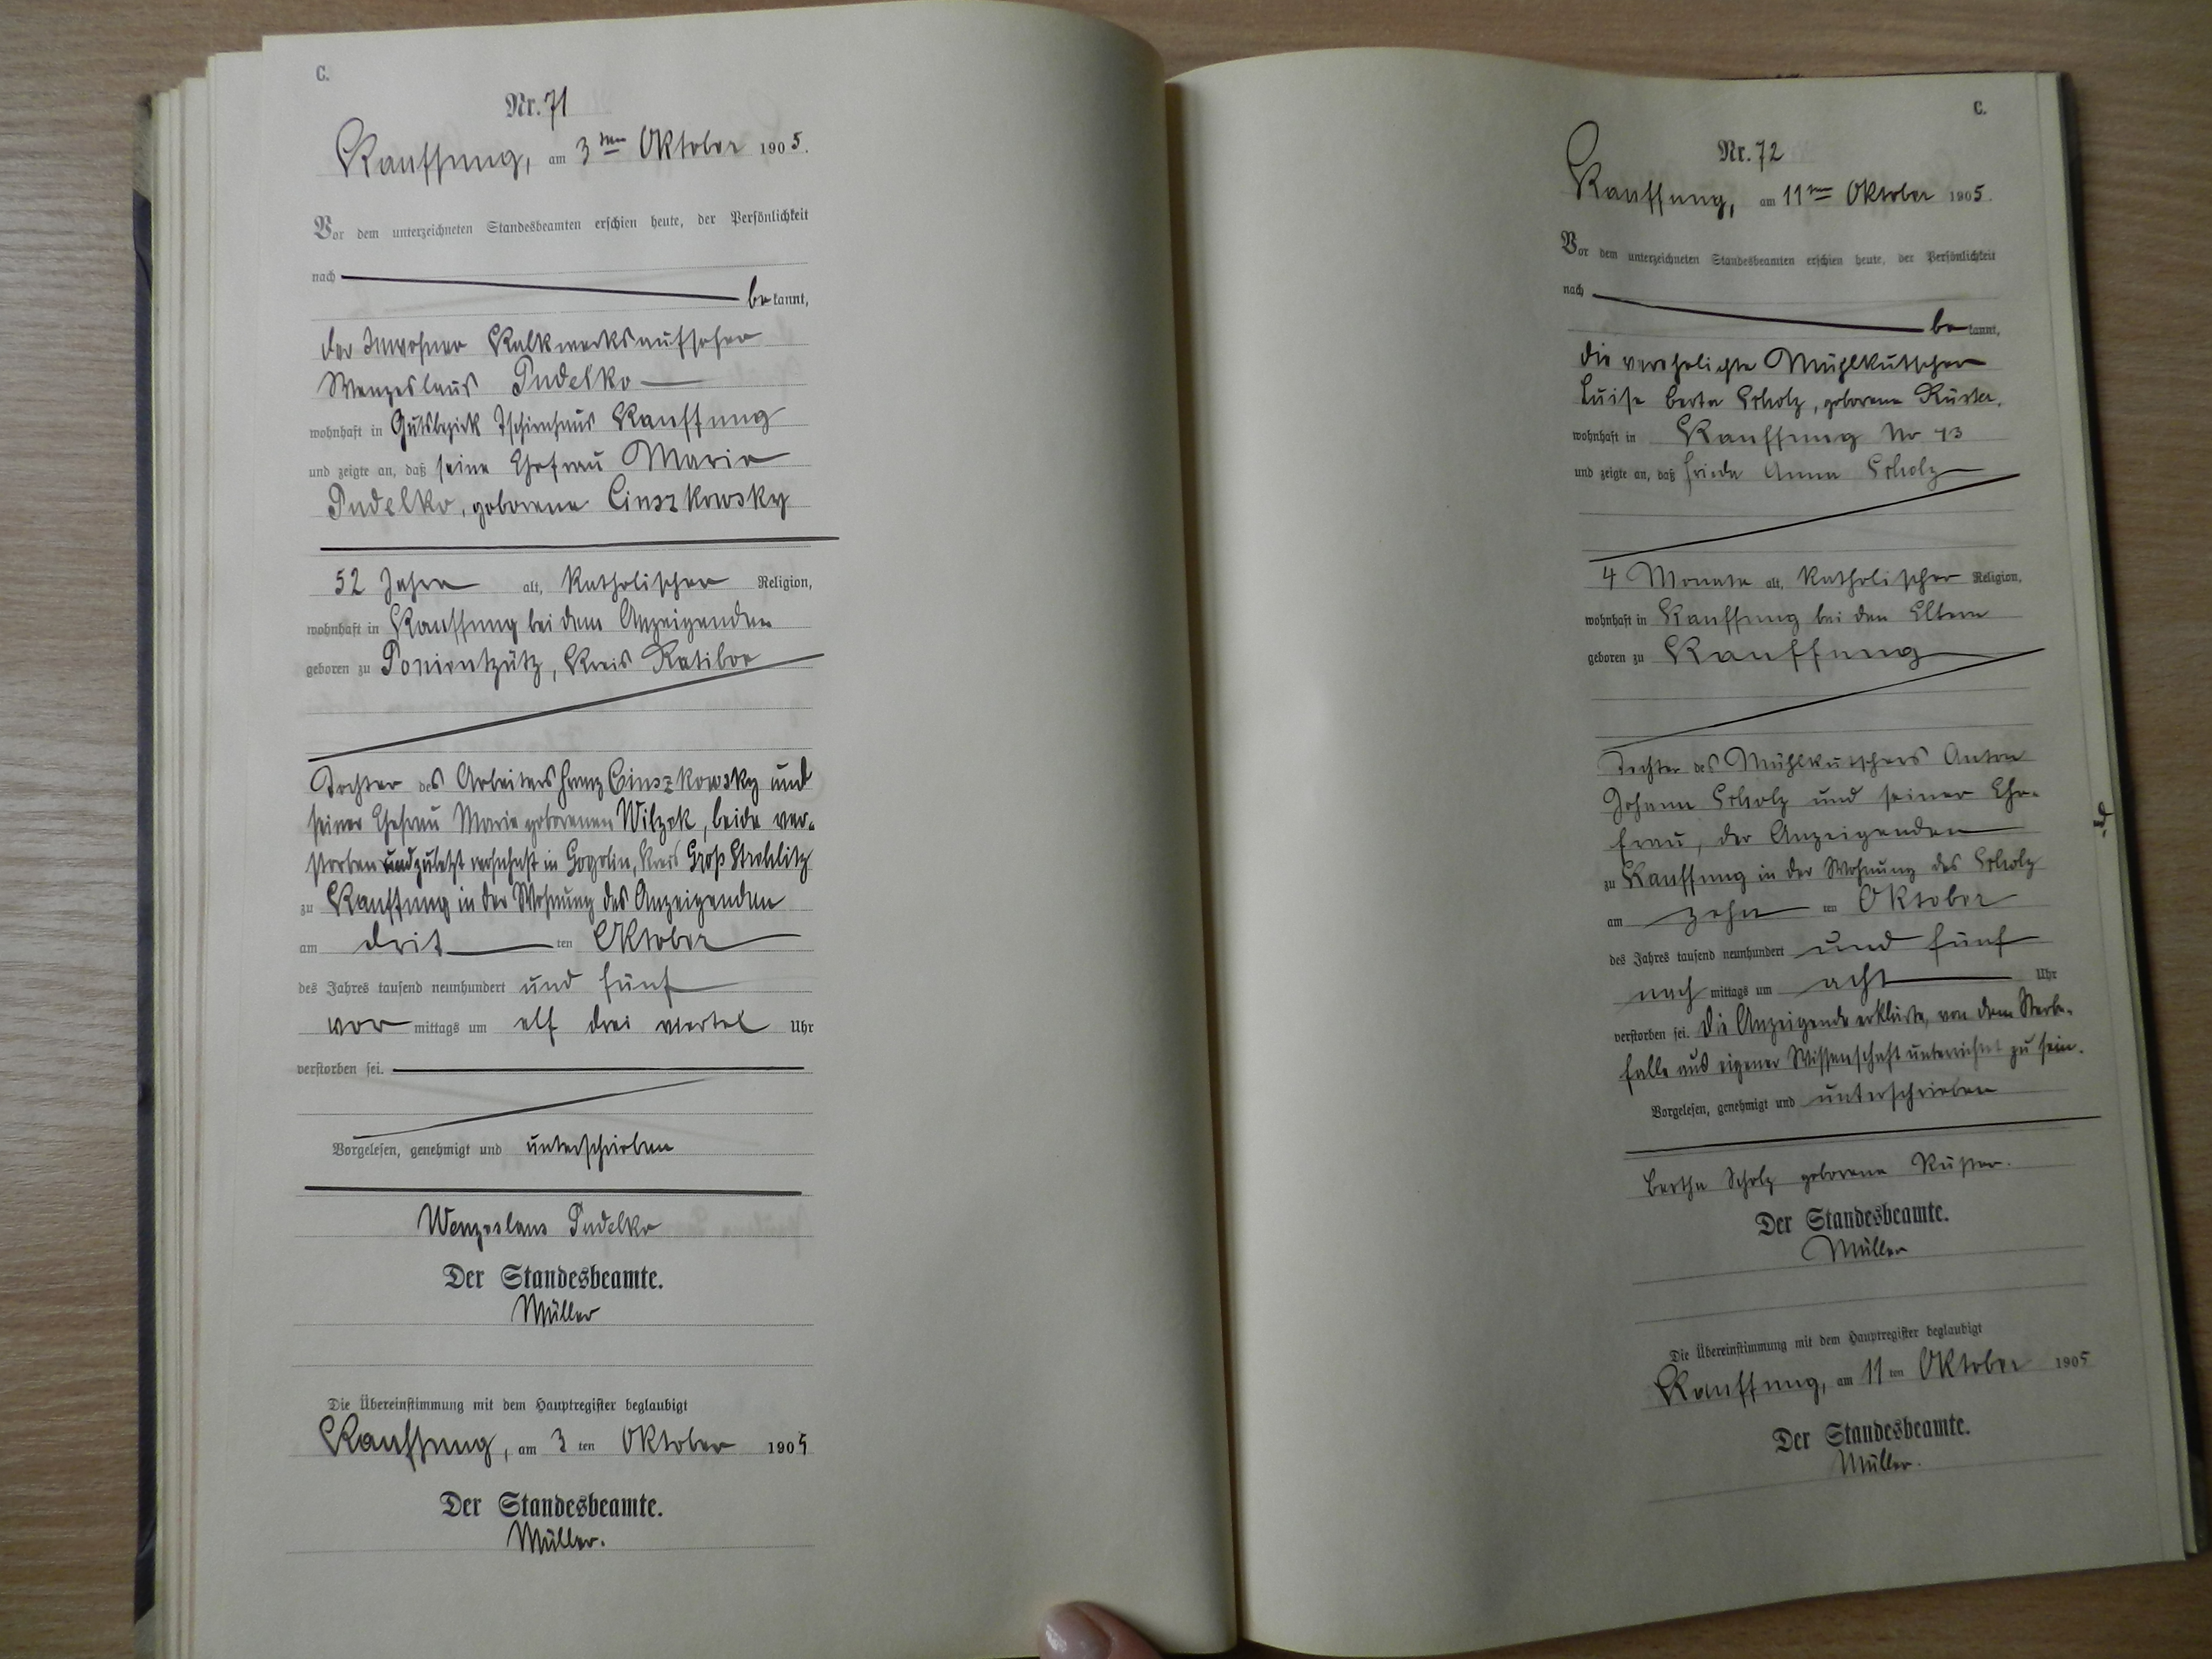 C.
Nr. 71
Kauffung, am 3ten Oktober 1905.
Vor dem unterzeichneten Standesbeamten erschien heute, der Persönlichkeit
nach bekannt,
der Inwohner Kalkwerksaufseher
Wenzeslaus Pudelko
wohnhaft in Gutsbezirk Tschirnhaus Kauffung
und zeigte an, daß seine Ehefrau Maria
Pudelko, geborene Cinszkowsky
52 Jahre alt, katholischer Religion,
wohnhaft in Kauffung bei dem Anzeigenden
geboren zu Ponientzütz, Kreis Ratibor
Tochter des Arbeiters Franz Cinszkowsky und
seiner Ehefrau Marie geborenen Wilzek, beide ver-
storben und zuletzt wohnhaft in Gogolin, Kreis Groß Strehlitz
zu Kauffung in der Wohnung des Anzeigenden
am dritten Oktober
des Jahres tausend neunhundert und fünf
vormittags um elf drei viertel Uhr
verstorben sei.
Vorgelesen, genehmigt und unterschrieben
Wenzeslaus Pudelko
Der Standesbeamte.
Müller
Die Übereinstimmung mit dem Hauptregister beglaubigt
Kauffung, am 3ten Oktober 1905
Der Standesbeamte.
Müller.
C.
Nr. 72
Kauffung, am 11ten Oktober 1905.
Vor dem unterzeichneten Standesbeamten erschien heute, der Persönlichkeit
nach bekannt,
die verehelichte Mühlkutscher
Luise Berta Scholz, geborene Küster.
wohnhaft in Kauffung No 43
und zeigte an, daß Frieda Anna Scholz
4 Monate alt, katholischer Religion,
wohnhaft in Kauffung bei den Eltern
geboren zu Kauffung
Tochter des Mühlkutschers Anton
Johann Scholz und seiner Ehe-
frau, der Anzeigenden
zu Kauffung in der Wohnung des Scholz
am zehnten Oktober
des Jahres tausend neunhundert und fünf
nachmittags um acht Uhr
verstorben sei. Die Anzeigende erklärte, von dem Sterbe-
falle aus eigener Wissenschaft unterrichtet zu sein.
Vorgelesen, genehmigt und unterschrieben
Bertha Scholz geborene Küster.
Der Standesbeamte.
Müller
Die Übereinstimmung mit dem Hauptregister beglaubigt
Kauffung, am 11ten Oktober 1905
Der Standesbeamte.
Müller.